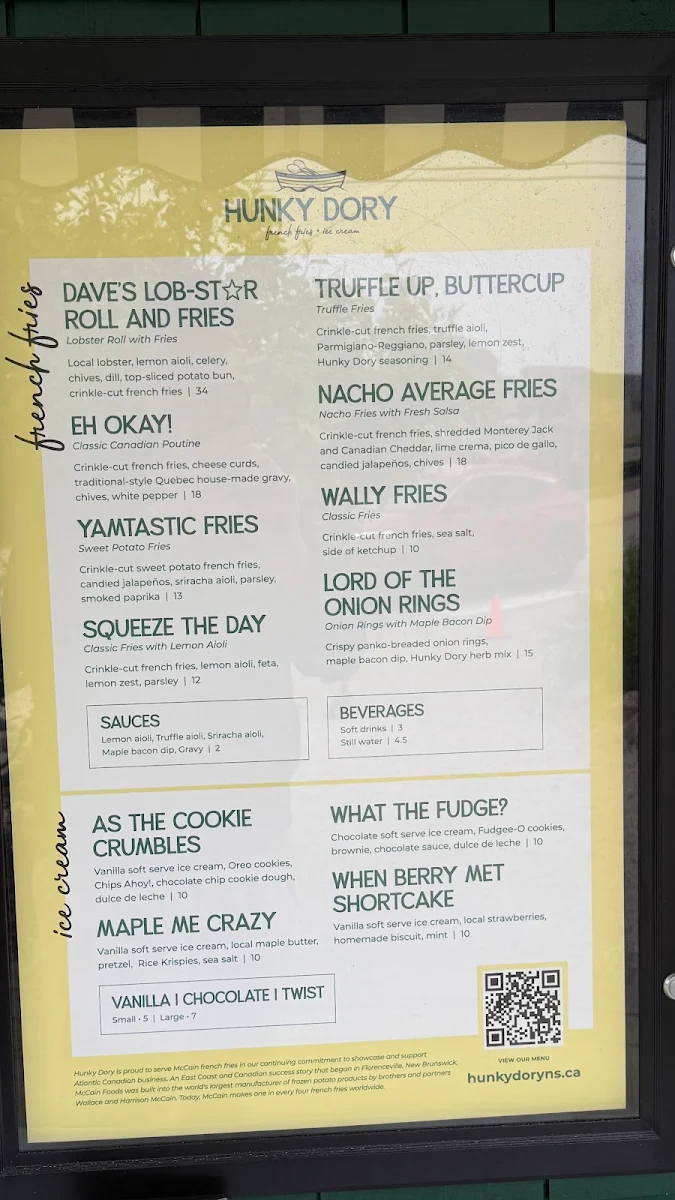 HUNKY DORY
french fries + ice cream
french fries
DAVE'S LOB-ST☆R
ROLL AND FRIES
Lobster Roll with Fries
Local lobster, lemon aioli, celery,
chives, dill, top-sliced potato bun,
crinkle-cut french fries | 34
EH OKAY!
Classic Canadian Poutine
Crinkle-cut french fries, cheese curds,
traditional-style Quebec house-made gravy,
chives, white pepper | 18
YAMTASTIC FRIES
Sweet Potato Fries
Crinkle-cut sweet potato french fries,
candied jalapeños, sriracha aioli, parsley,
smoked paprika | 13
SQUEEZE THE DAY
Classic Fries with Lemon Aioli
Crinkle-cut french fries, lemon aioli, feta,
lemon zest, parsley | 12
SAUCES
Lemon aioli, Truffle aioli, Sriracha aioli,
Maple bacon dip, Gravy | 2
TRUFFLE UP, BUTTERCUP
Truffle Fries
Crinkle-cut french fries, truffle aioli,
Parmigiano-Reggiano, parsley, lemon zest,
Hunky Dory seasoning | 14
NACHO AVERAGE FRIES
Nacho Fries with Fresh Salsa
Crinkle-cut french fries, shredded Monterey Jack
and Canadian Cheddar, lime crema, pico de gallo,
candied jalapeños, chives | 18
WALLY FRIES
Classic Fries
Crinkle-cut french fries, sea salt,
side of ketchup | 10
LORD OF THE
ONION RINGS
Onion Rings with Maple Bacon Dip
Crispy panko-breaded onion rings,
maple bacon dip, Hunky Dory herb mix | 15
BEVERAGES
Soft drinks | 3
Still water | 4.5
ice cream
AS THE COOKIE
CRUMBLES
Vanilla soft serve ice cream, Oreo cookies,
Chips Ahoy!, chocolate chip cookie dough,
dulce de leche | 10
MAPLE ME CRAZY
Vanilla soft serve ice cream, local maple butter,
pretzel, Rice Krispies, sea salt | 10
VANILLA | CHOCOLATE | TWIST
Small • 5 | Large • 7
WHAT THE FUDGE?
Chocolate soft serve ice cream, Fudgee-O cookies,
brownie, chocolate sauce, dulce de leche | 10
WHEN BERRY MET
SHORTCAKE
Vanilla soft serve ice cream, local strawberries,
homemade biscuit, mint | 10
Hunky Dory is proud to serve McCain french fries in our continuing commitment to showcase and support
Atlantic Canadian business. An East Coast and Canadian success story that began in Florenceville, New Brunswick,
McCain Foods was built into the world's largest manufacturer of frozen potato products by brothers and partners
Wallace and Harrison McCain. Today, McCain makes one in every four french fries worldwide.
VIEW OUR MENU
hunkydoryns.ca